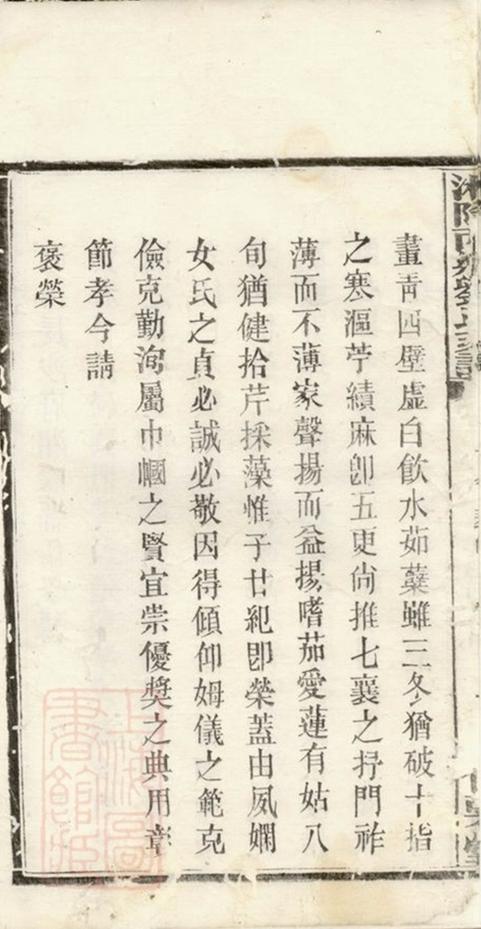 晝青四壁虛白飲水茹蘗雖三冬猶破十指
之寒漚苧績麻卽五更尙推七襄之抒門祚
薄而不薄家聲揚而益揚嗜茄愛蓮有姑八
旬猶健拾芹採藻惟子廿紀卽榮蓋由夙嫻
女氏之貞必誠必敬因得傾仰姆儀之範克
儉克勤洵屬巾幗之賢宜崇優奬之典用章
節孝今請
褒榮
上海圖書館